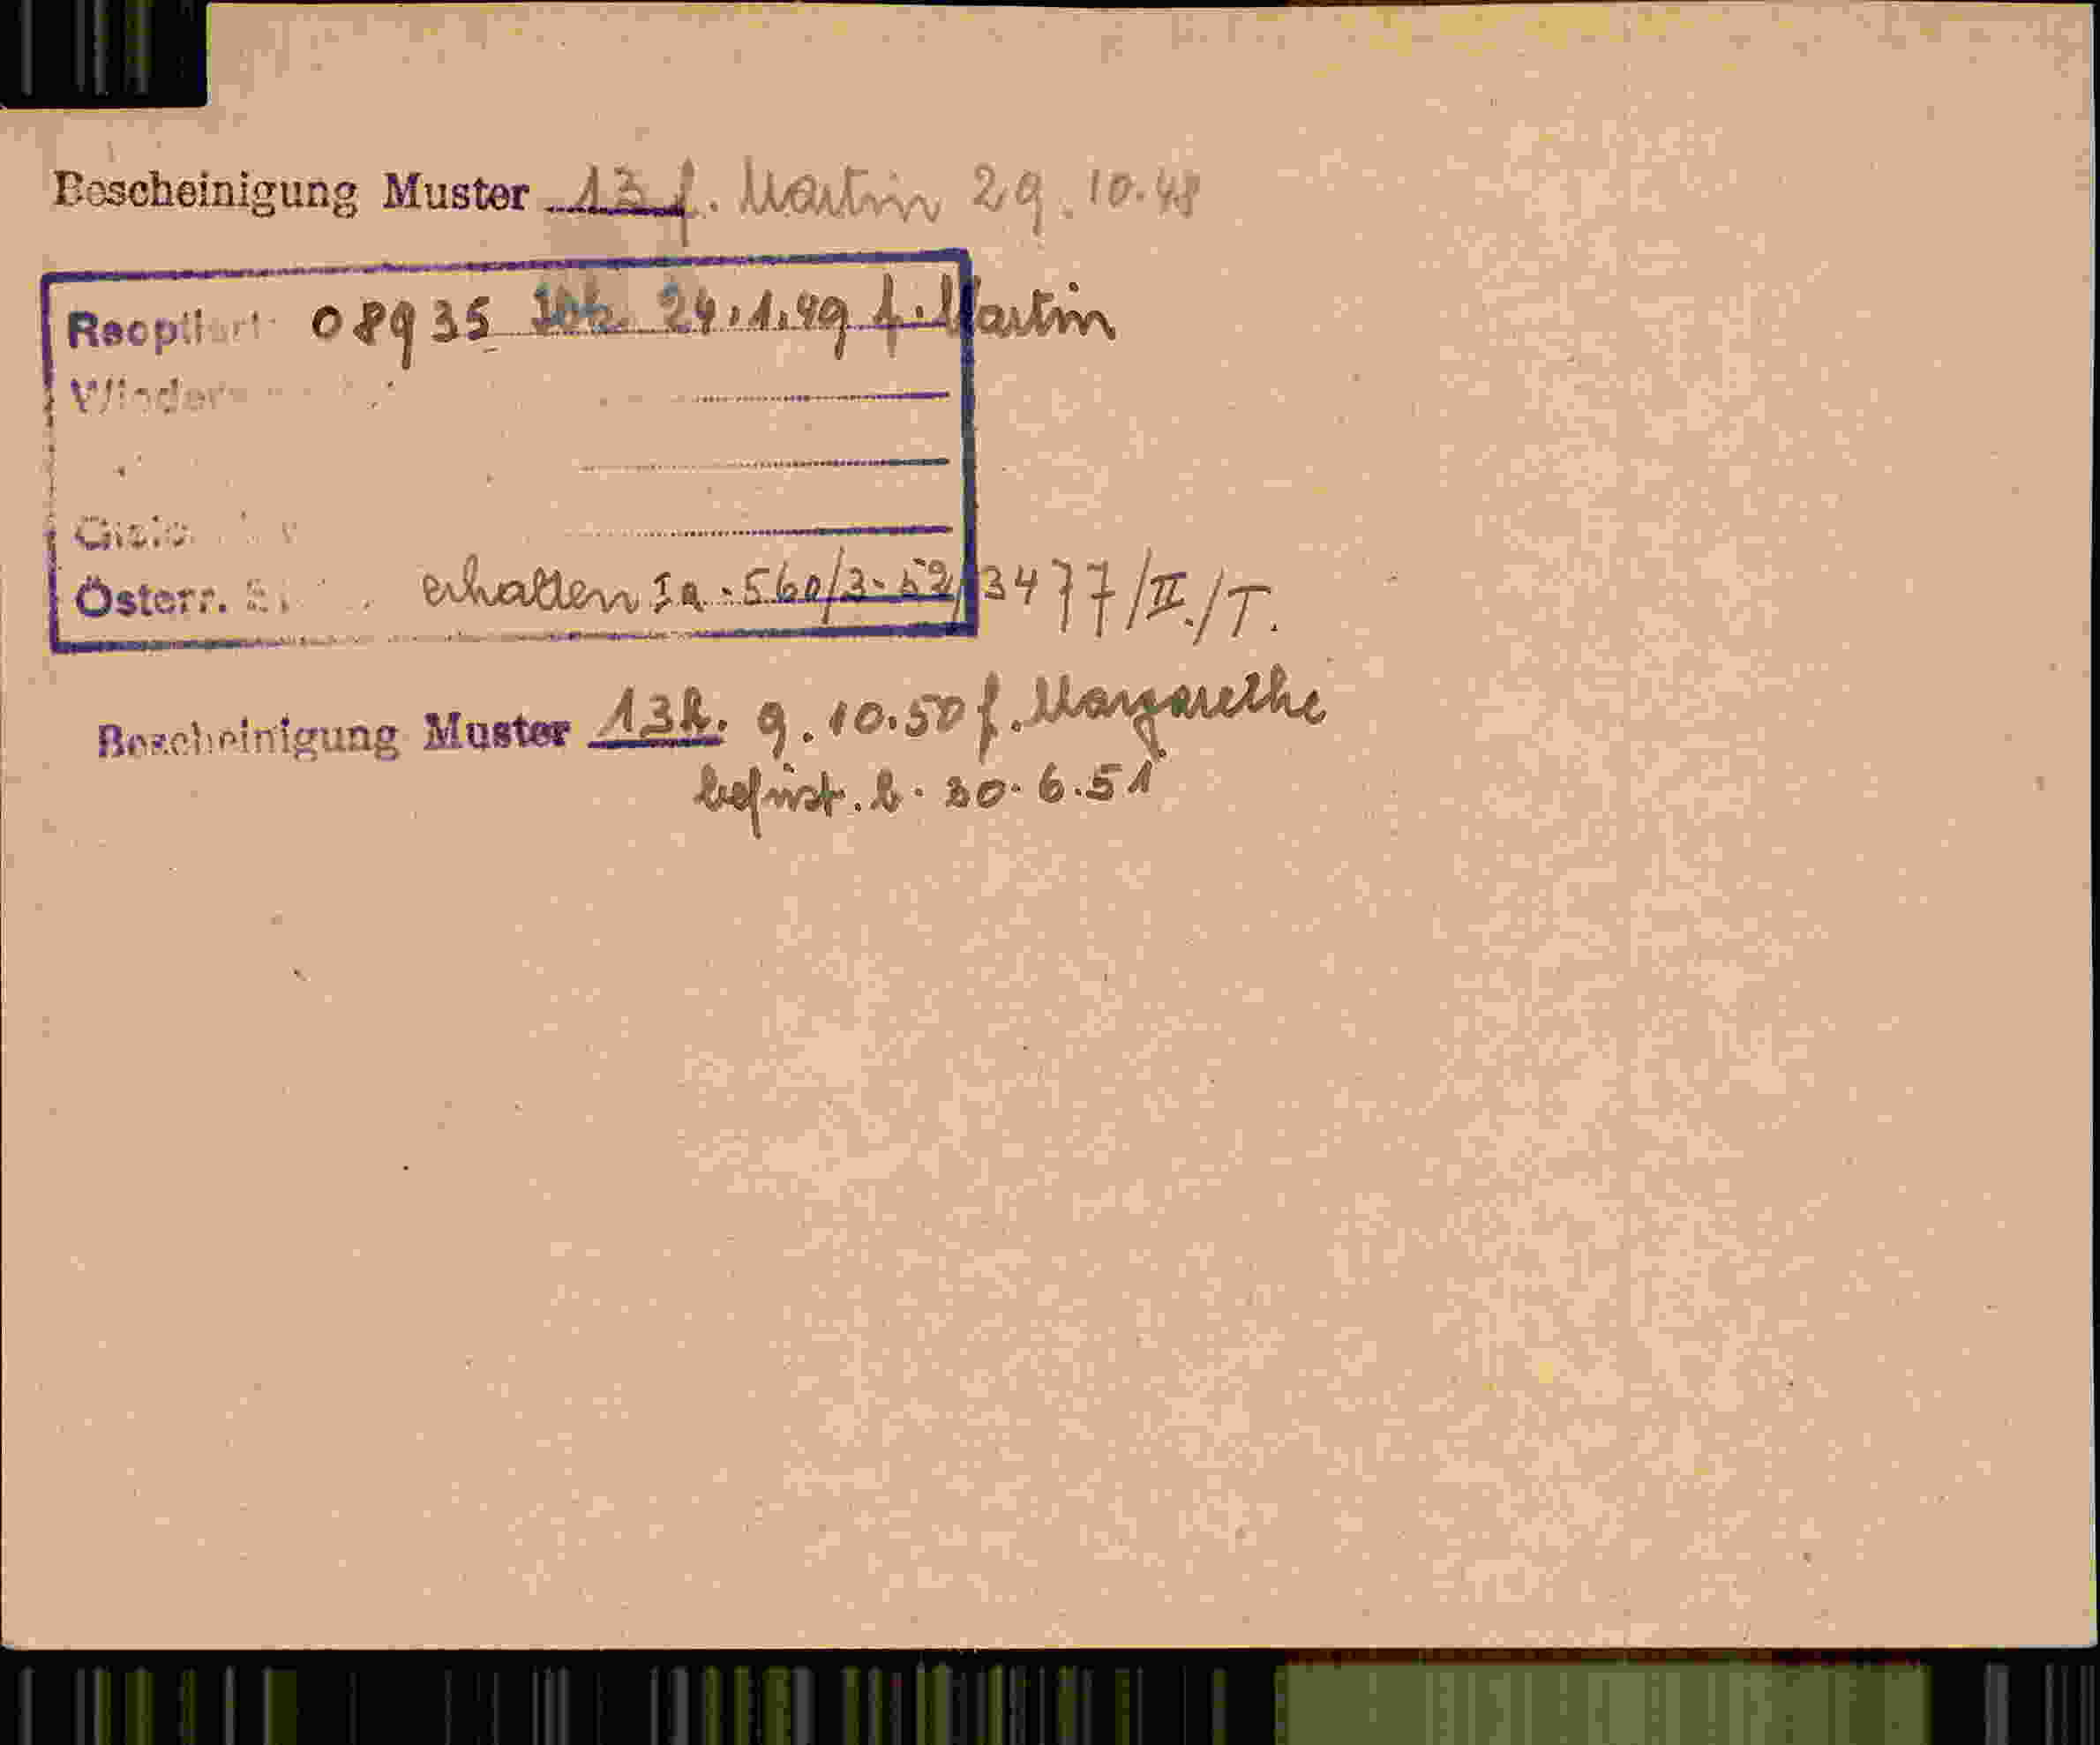 Bescheinigung Muster 13 f. Martin 29.10.48
Reoptiert 08935 24.1.49 f. Martin
Österr. erhalten Ia-560/3-52/3477/II./T.
Bescheinigung Muster 13k. 9.10.50 f. Margarethe
befrist. b. 30.6.51